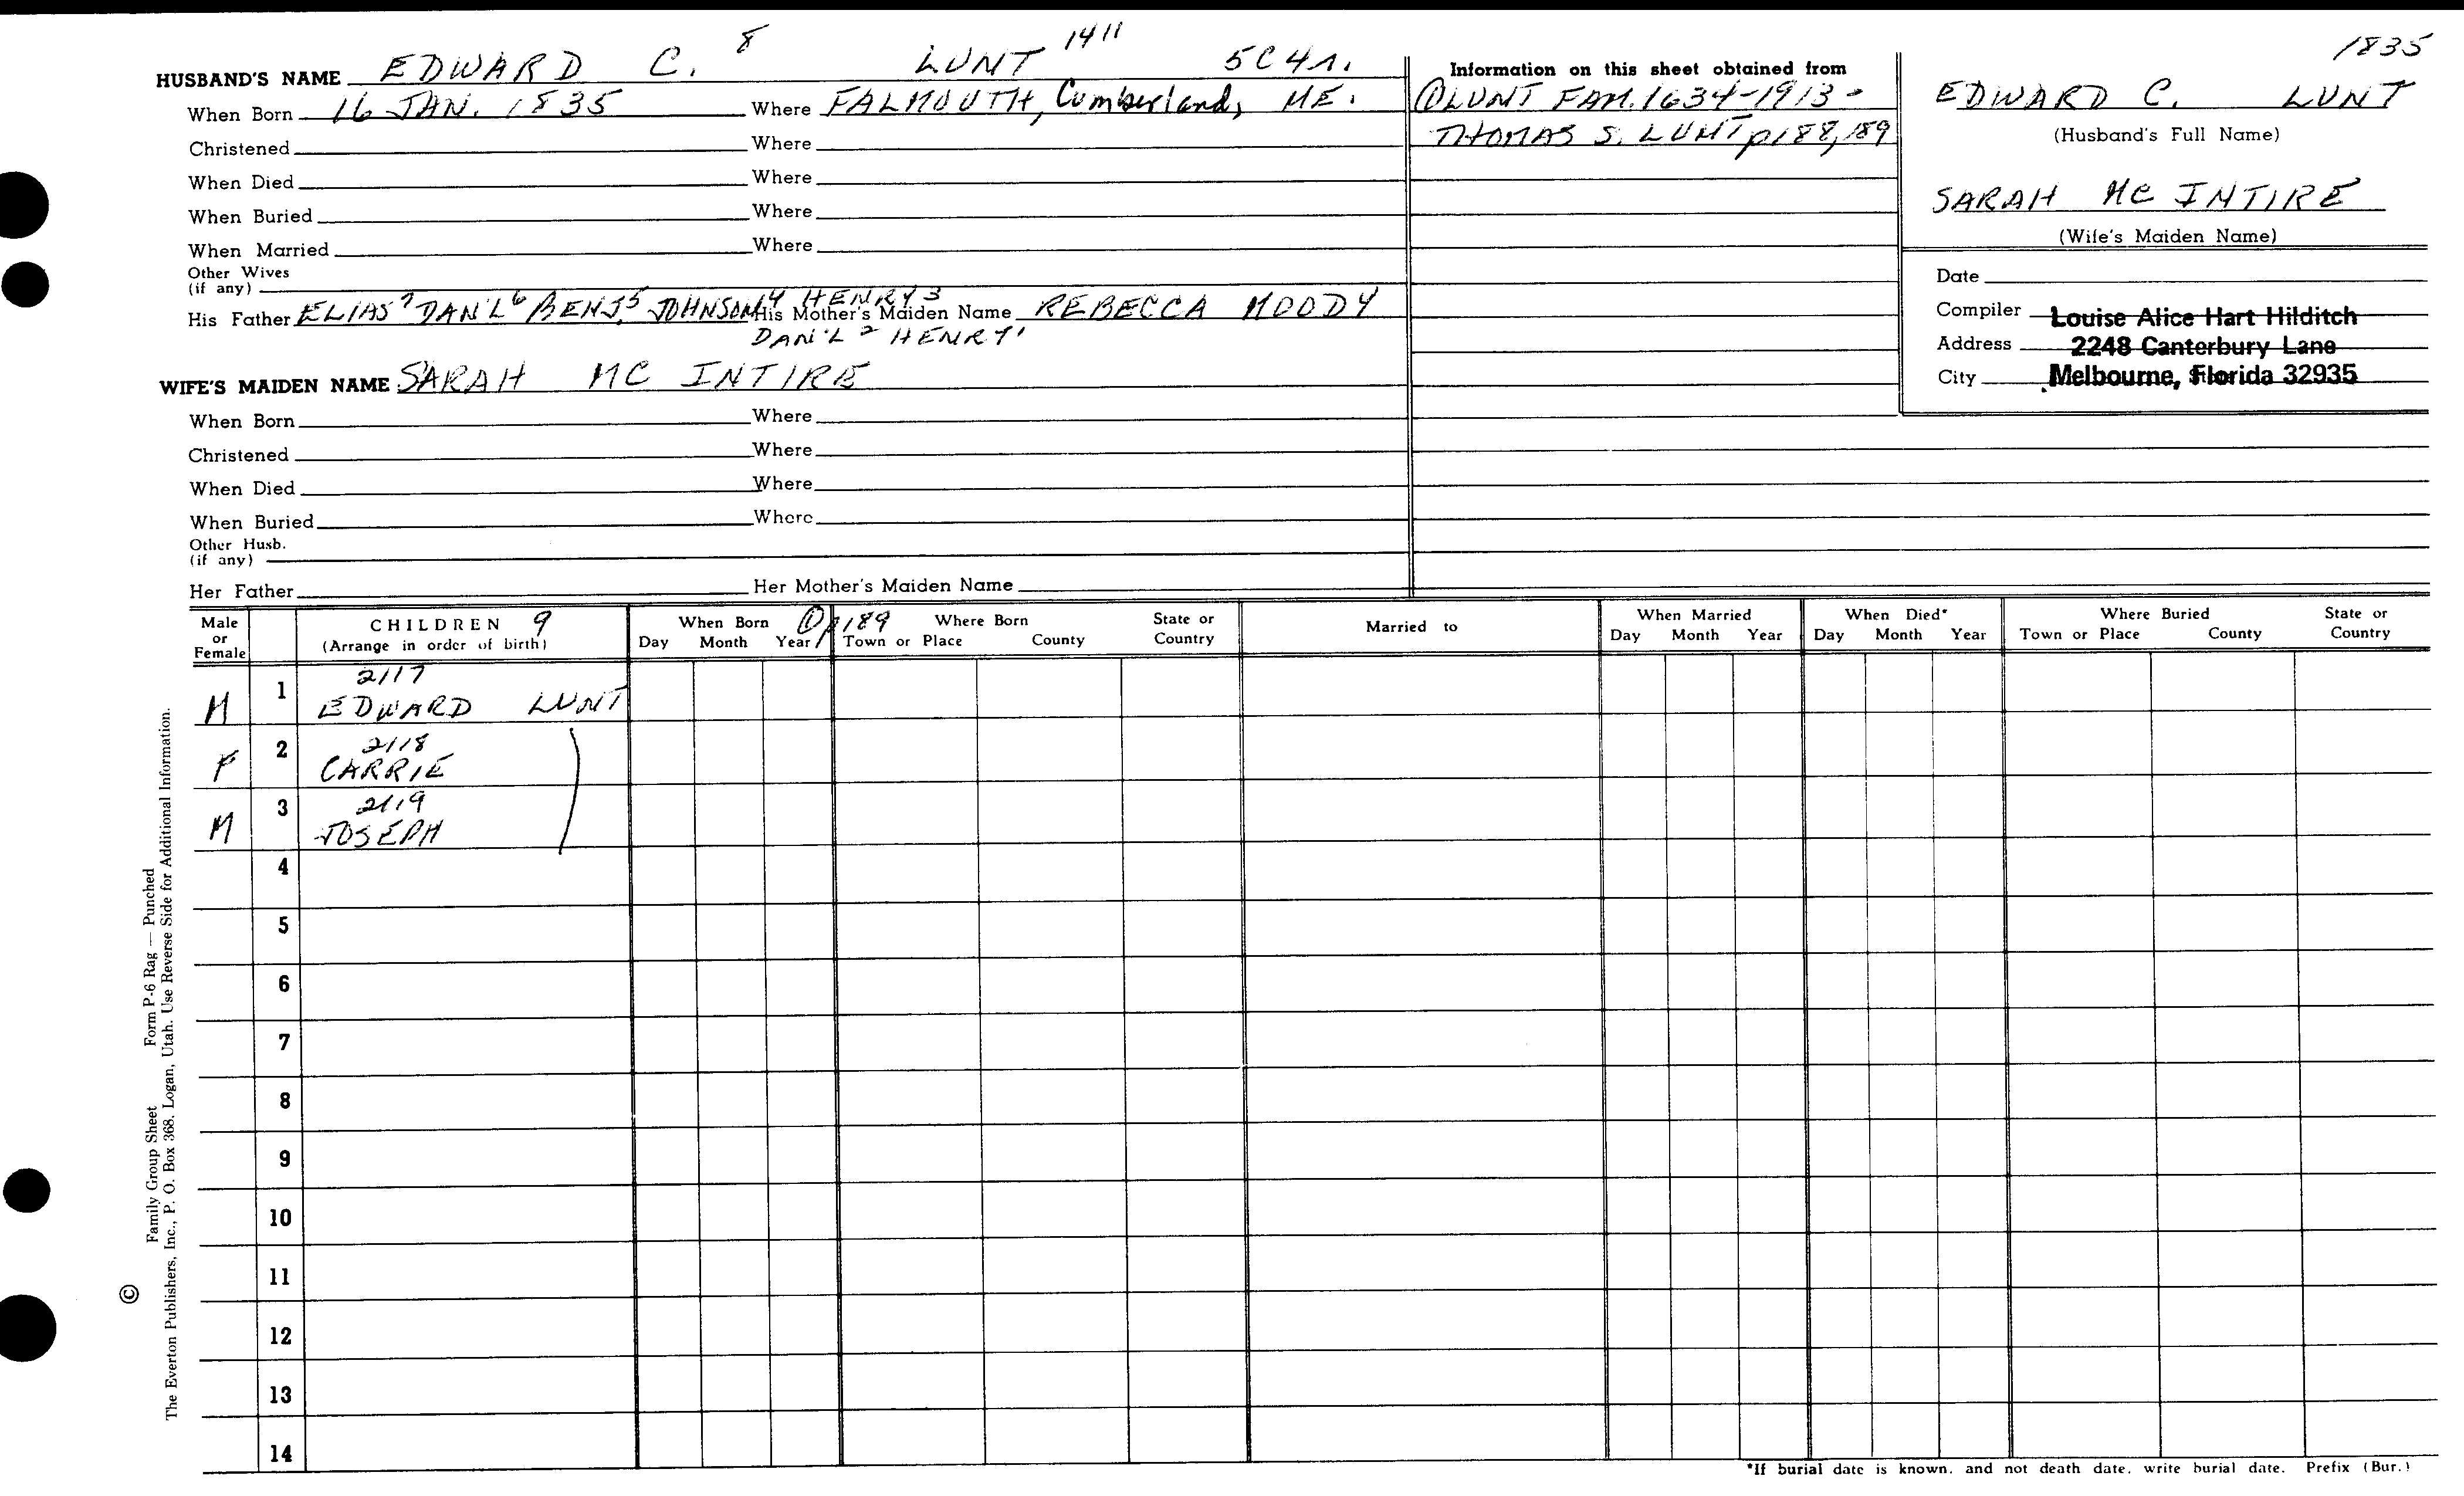 HUSBAND'S NAME EDWARD C. 8 LUNT 1411 5C4r.
When Born 16 JAN. 1835 Where FALMOUTH, Cumberland, ME.
Christened Where
When Died Where
When Buried Where
When Married Where
Other Wives
(if any)
His Father ELIAS 7 DAN'L 6 BENJ. 5 JOHNSON 4 HENRY 3 His Mother's Maiden Name REBECCA MOODY
DAN'L 2 HENRY 1
WIFE'S MAIDEN NAME SARAH MC INTIRE
When Born Where
Christened Where
When Died Where
When Buried Where
Other Husb.
(if any)
Her Father Her Mother's Maiden Name
Information on this sheet obtained from
① LUNT FAM. 1634-1913 -
THOMAS S. LUNT p188, 189
1835
EDWARD C. LUNT
(Husband's Full Name)
SARAH MC INTIRE
(Wife's Maiden Name)
Date
Compiler Louise Alice Hart Hilditch
Address 2248 Canterbury Lane
City Melbourne, Florida 32935
Male or Female
CHILDREN 9
(Arrange in order of birth)
When Born ① p189
Day Month Year
Where Born State or
Town or Place County Country
Married to
When Married
Day Month Year
When Died*
Day Month Year
Where Buried State or
Town or Place County Country
2117
M 1 EDWARD LUNT
2118
F 2 CARRIE
2119
M 3 JOSEPH
4
5
6
7
8
9
10
11
12
13
14
*If burial date is known, and not death date, write burial date. Prefix (Bur.)
© Family Group Sheet Form P-6 Rag — Punched
The Everton Publishers, Inc., P. O. Box 368. Logan, Utah. Use Reverse Side for Additional Information.